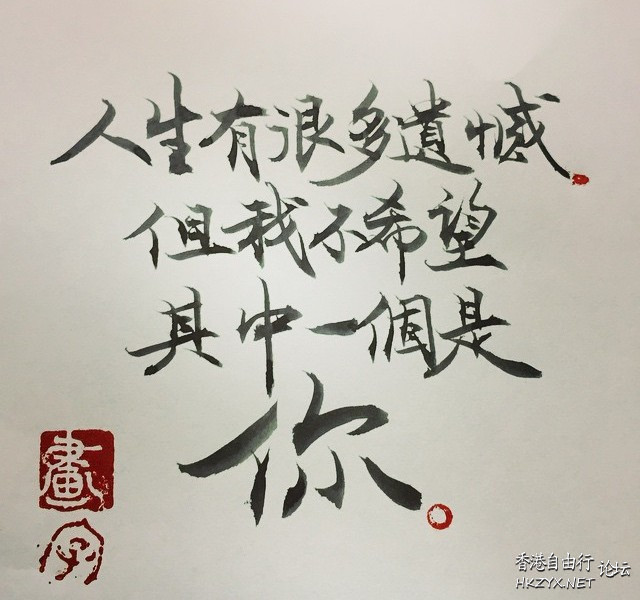 人生有很多遺憾.
但我不希望
其中一個是
你。
畫
字
香港自由行 论坛
HKZYX.NET